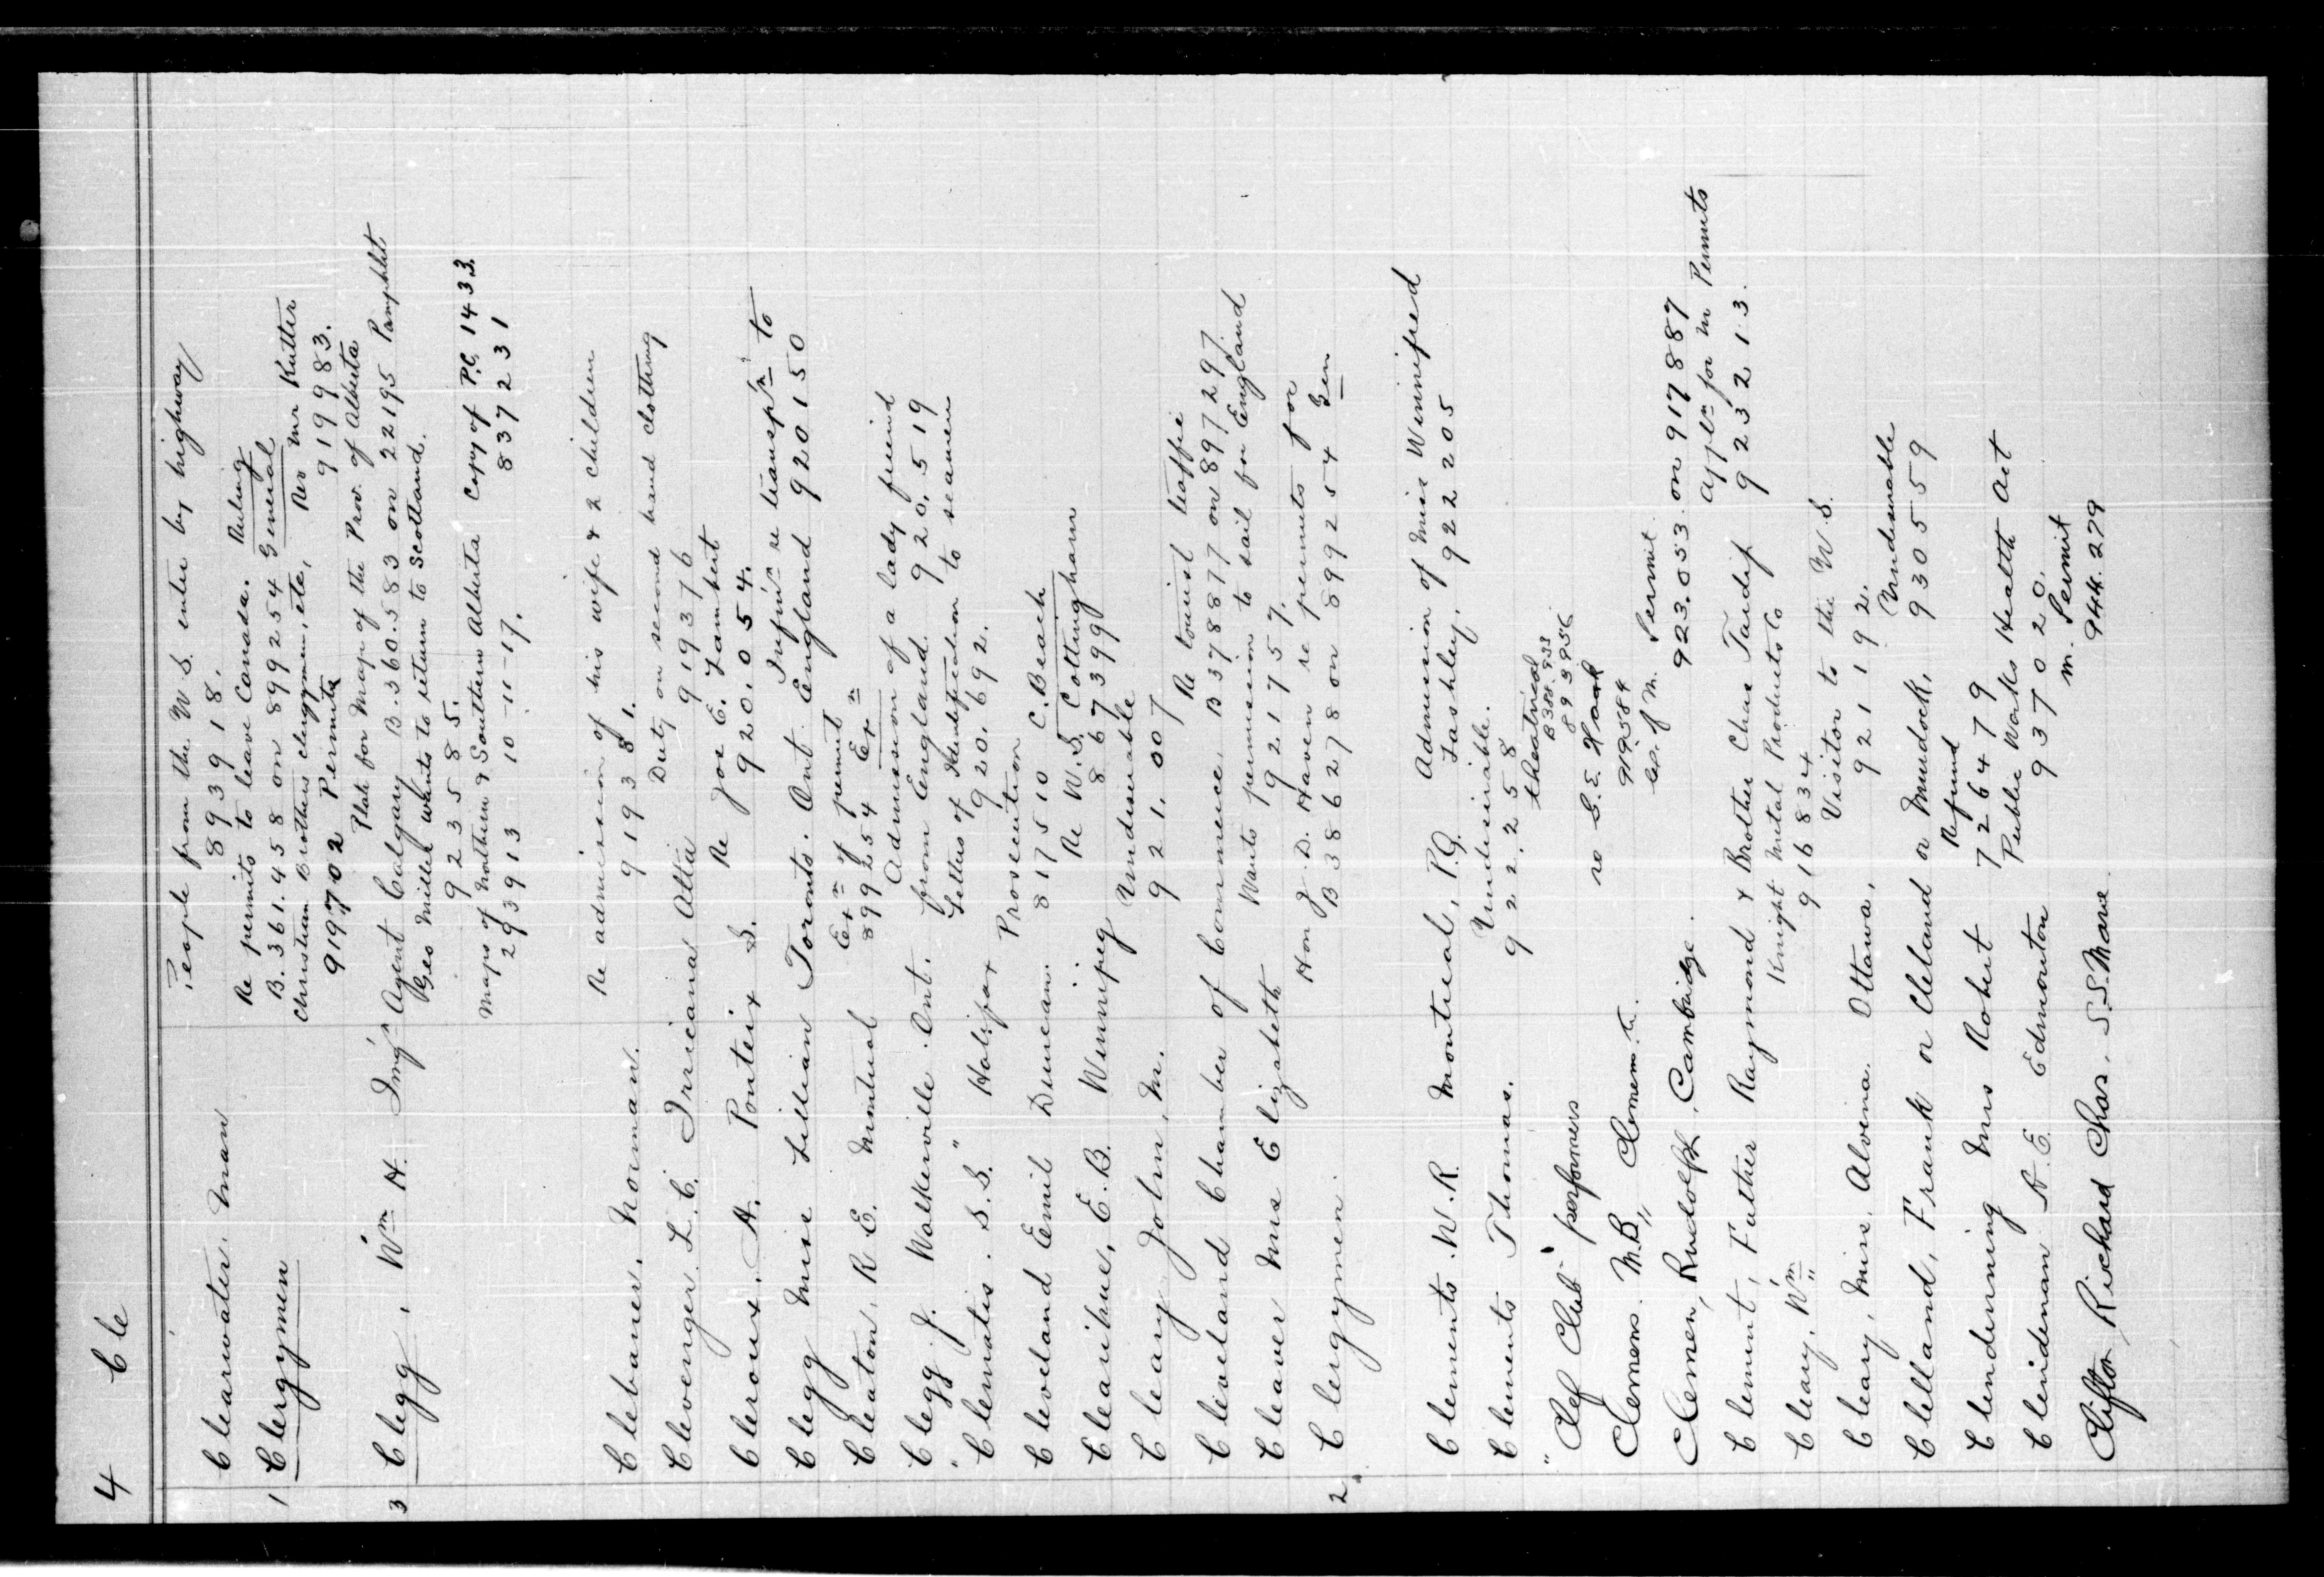 4 Cle
People from the U.S. enter by highway
Clearwater, Man 893918.
Re permits to leave Canada. Ruling
1 Clergymen B. 361.458 on 899254 General
Christian Brothers clergymen, etc, Rev Mr Rutter
919702 Permits 919983.
Plate for Map of the Prov. of Alberta
3 Clegg, Wm H. Img'n Agent Calgary B.360.583 on 22195 Pamphlet
Geo Miller wants to return to Scotland.
923585.
Maps of Northern & Southern Alberta Copy of P.C. 1433.
293913 10-11-17. 837231
Re admission of his wife & 2 children
Clebaner, Norman. 919381.
Duty on second hand clothing
Clevenger. L.C. Irricana Alta 919376
Re Joe E. Lambert
Cleroux. A. Ponteix S. 920.054.
Inf'n re transp'n to
Clegg Miss Lillian Toronto. Ont England 920150
Ex'n of permit Ex'n
Cleaton, R.E. Montreal 899254
Admission of a lady friend
Clegg J. Walkerville. Ont. from England. 920.519
Letters of Identification to seamen
"Clematis. S.S." Halifax 920.692.
Prosecution
Cleveland Emil Duncan. 817510 C. Beach
Re W.S. Cottingham
Clearihue, E.B. Winnipeg 867399
Undesirable
Cleary John, M. 921.007
Re tourist traffic
Cleveland Chamber of Commerce. B378877 on 897297.
Wants permission to sail for England
Cleaver Mrs Elizabeth 921757.
Hon J.D. Haven re permits for
2 Clergymen. B386278 on 899254 Gen
Admission of Miss Winnifred
Clements. W.R. Montreal, P.Q. Lashley. 922205
Undesirable.
Clements Thomas. 922.258
theatrical
B388.933
"Clef Club" performers 893956
Clemens. M.B., Clemem. re S.E. Hook
919584
Co. of M. Permit.
Clemen, Rudolph, Cambridge. 923.053 on 917887
appl'n for M Permits
Clement, Father Raymond & Brother Chas Tardif 923213.
Knight Metal Products Co
Cleary, Wm 916834
Visitor to the U.S.
Cleary, Miss. Alvina. Ottawa. 921192.
Undesirable
Clelland, Frank or Cleland or Murdock, 930559
Refund
Clendenning Mrs Robert 726479
Public Works Health Act
Clendenan A.E. Edmonton 937020.
M. Permit
Clifton, Richard Chas. S.S. Marie 944.279